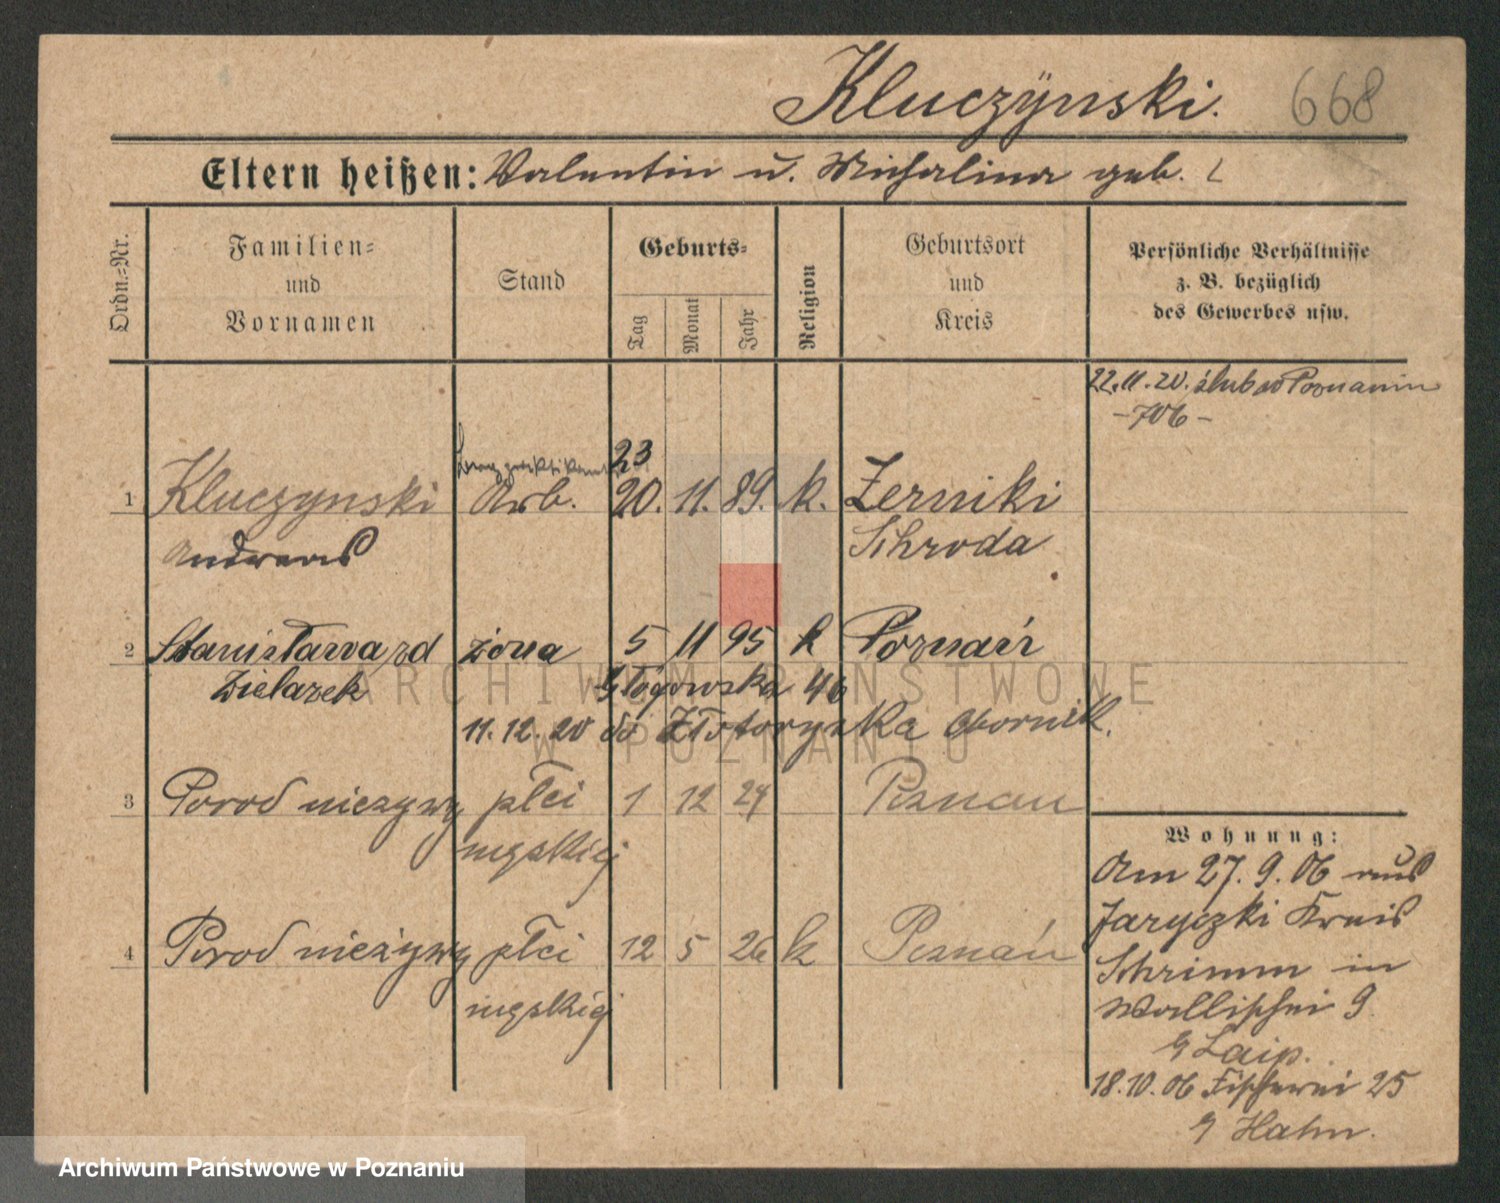 Kluczynski. 668
Eltern heißen: Valentin u. Michalina geb.
Ordn.-Nr.
Familien-
und
Vornamen
Stand
Geburts-
Tag
Monat
Jahr
Religion
Geburtsort
und
Kreis
Persönliche Verhältnisse
z. B. bezüglich
des Gewerbes usw.
22.11.20. ślub w Poznaniu
-706-
23
1 Kluczynski Arb. 20. 11. 89. k. Zerniki
Andreas Schroda
2 Stanisława zd żona 5 11 95 k Poznań
Zielazek Głogowska 46
11.12.20 do Złotoryska Obornik.
3 Porod nieżywy płci 1 12 24 Poznań
męskiej
4 Porod nieżywy płci 12 5 26 k Poznań
męskiej
Wohnung:
Am 27. 9. 06 aus
Jaryczki Kreis
Schrimm in
Wallischei 9
Laip.
18.10.06 Fischerei 25
Hahn.
ARCHIWUM PAŃSTWOWE
W POZNANIU
Archiwum Państwowe w Poznaniu